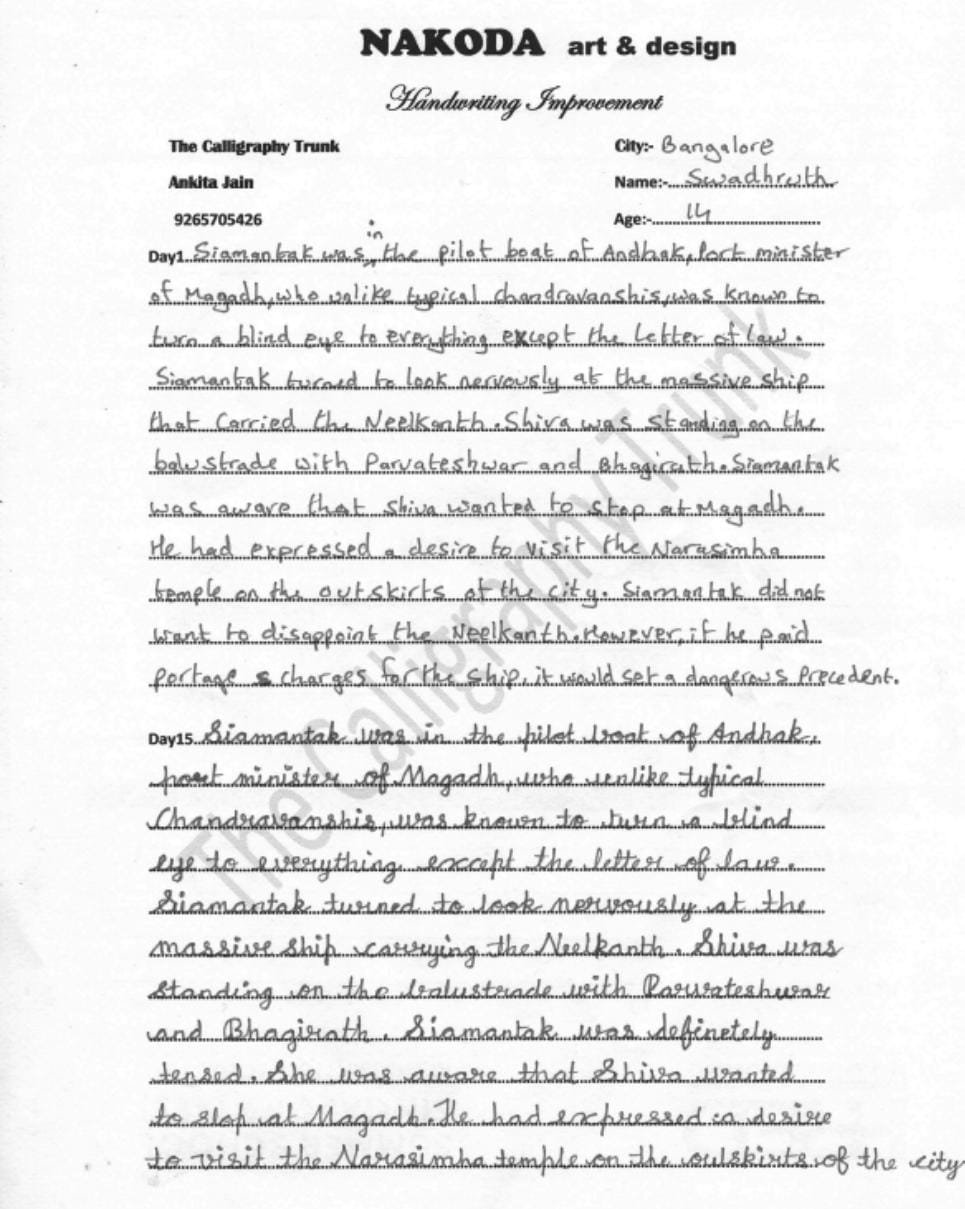 NAKODA art & design
Handwriting Improvement
The Calligraphy Trunk
City:- Bangalore
Ankita Jain
Name:- Swadhruth
9265705426
Age:- 14
in
Day1 Siamantak was, the pilot boat of Andhak, Port minister
of Magadh, who unlike typical chandravanshis, was known to
turn a blind eye to everything except the letter of law.
Siamantak turned to look nervously at the massive ship
that Carried the Neelkanth. Shiva was standing on the
balustrade with Parvateshwar and Bhagirath. Siamantak
was aware that Shiva wanted to stop at Magadh.
He had expressed a desire to visit the Narasimha
temple on the outskirts of the city. Siamantak did not
want to disappoint the Neelkanth. However, if he paid
portage charges for the ship, it would set a dangerous Precedent.
Day15 Siamantak was in the pilot boat of Andhak,
port minister of Magadh, who unlike typical
Chandravanshis, was known to turn a blind
eye to everything except the letter of law.
Siamantak turned to look nervously at the
massive ship carrying the Neelkanth. Shiva was
standing on the balustrade with Parvateshwar
and Bhagirath. Siamantak was definetely
tensed. She was aware that Shiva wanted
to stop at Magadh. He had expressed a desire
to visit the Narasimha temple on the outskirts of the city
The Calligraphy Trunk